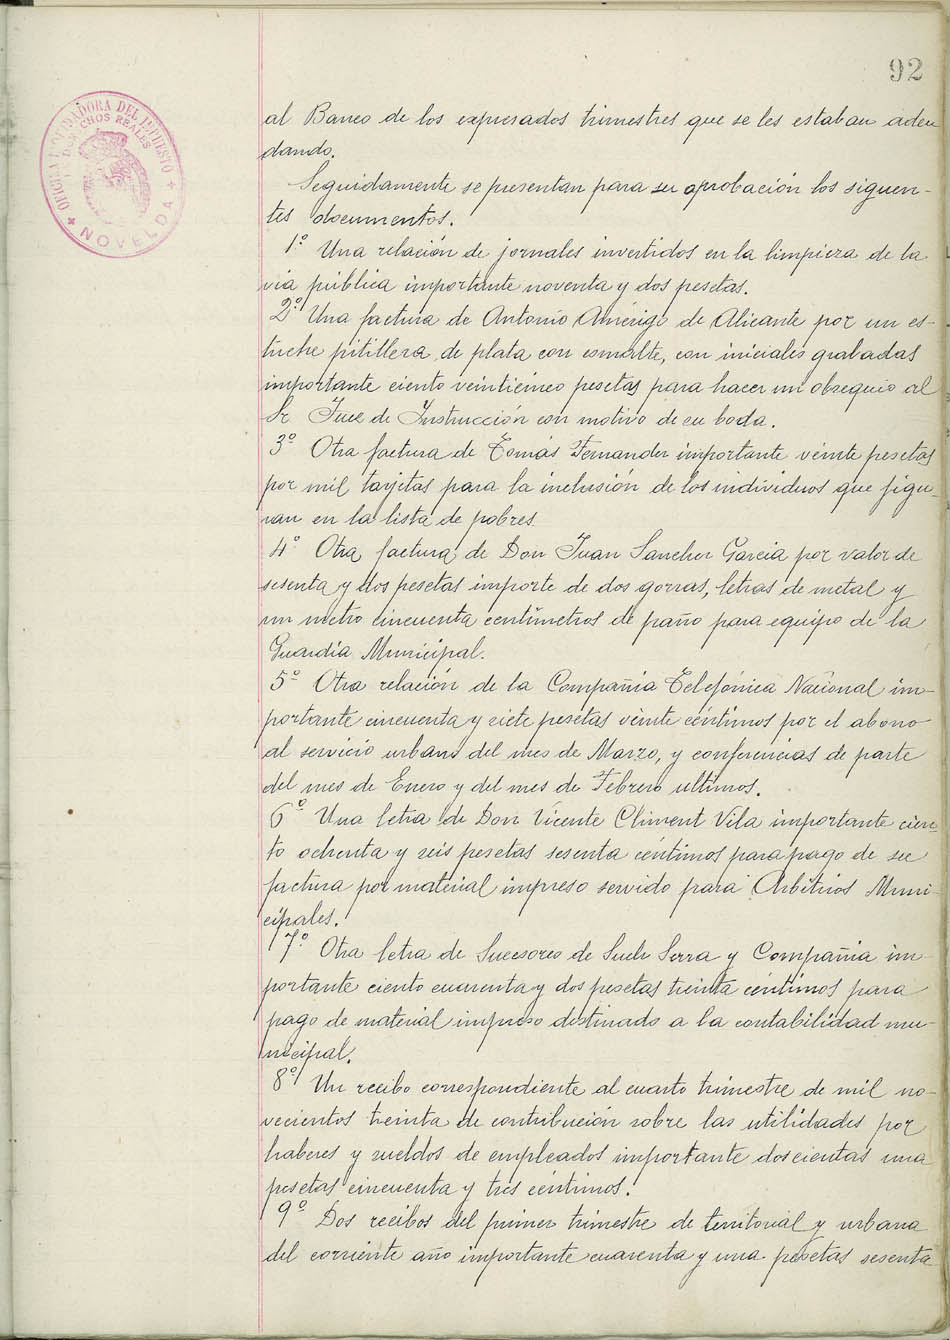 92
OFICINA LIQUIDADORA DEL IMPUESTO
DERECHOS REALES
NOVELDA
al Banco de los expresados trimestres que se les estaban adeu
dando.
Seguidamente se presentan para su aprobación los siguien-
tes documentos.
1º Una relación de jornales invertidos en la limpieza de la
via pública importante noventa y dos pesetas.
2º Una factura de Antonio Amérigo de Alicante por un es-
tuche pitillera de plata con esmalte, con iniciales grabadas
importante ciento veinticinco pesetas para hacer un obsequio al
Sr Juez de Instrucción con motivo de su boda.
3º Otra factura de Tomás Fernandez importante veinte pesetas
por mil tarjetas para la inclusión de los individuos que figu-
ran en la lista de pobres.
4º Otra factura de Don Juan Sanchez Garcia por valor de
sesenta y dos pesetas importe de dos gorras, letras de metal y
un metro cincuenta centimetros de paño para equipo de la
Guardia Municipal.
5º Otra relación de la Compañia Telefónica Nacional im-
portante cincuenta y siete pesetas veinte céntimos por el abono
al servicio urbano del mes de Marzo, y conferencias de parte
del mes de Enero y del mes de Febrero ultimos.
6º Una letra de Don Vicente Climent Vila importante cien-
to ochenta y seis pesetas sesenta céntimos para pago de su
factura por material impreso servido para Arbitrios Muni-
cipales.
7º Otra letra de Sucesores de Such Serra y Compañia im-
portante ciento cuarenta y dos pesetas treinta céntimos para
pago de material impreso destinado a la contabilidad mu-
nicipal.
8º Un recibo correspondiente al cuarto trimestre de mil no-
vecientos treinta de contribución sobre las utilidades por
haberes y sueldos de empleados importante doscientas una
pesetas cincuenta y tres céntimos.
9º Dos recibos del primer trimestre de territorial y urbana
del corriente año importante cuarenta y una pesetas sesenta